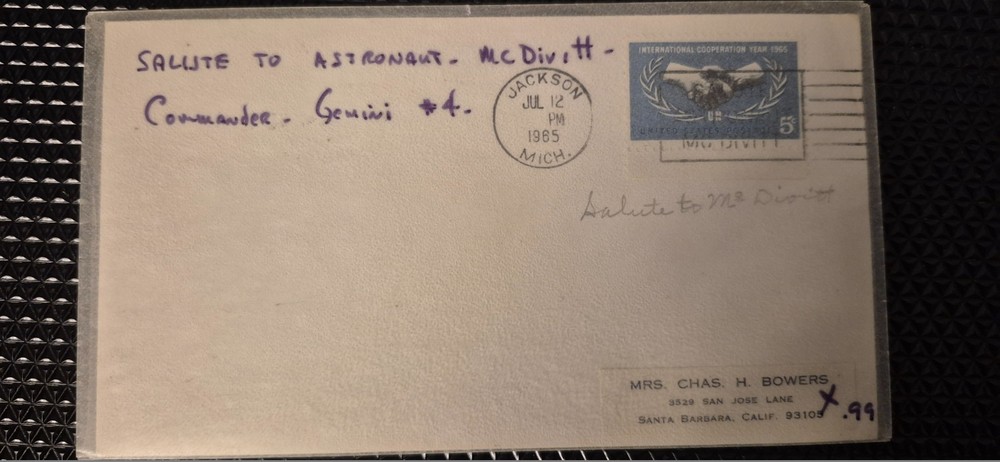 SALUTE TO ASTRONAUT - McDivitt -
Commander - Gemini #4.
JACKSON
JUL 12
PM
1965
MICH.
INTERNATIONAL COOPERATION YEAR 1965
UNITED STATES POSTAGE
5¢
MC DIVITT
Salute to Mc Divitt
MRS. CHAS. H. BOWERS
3529 SAN JOSE LANE
SANTA BARBARA, CALIF. 93105
X .99